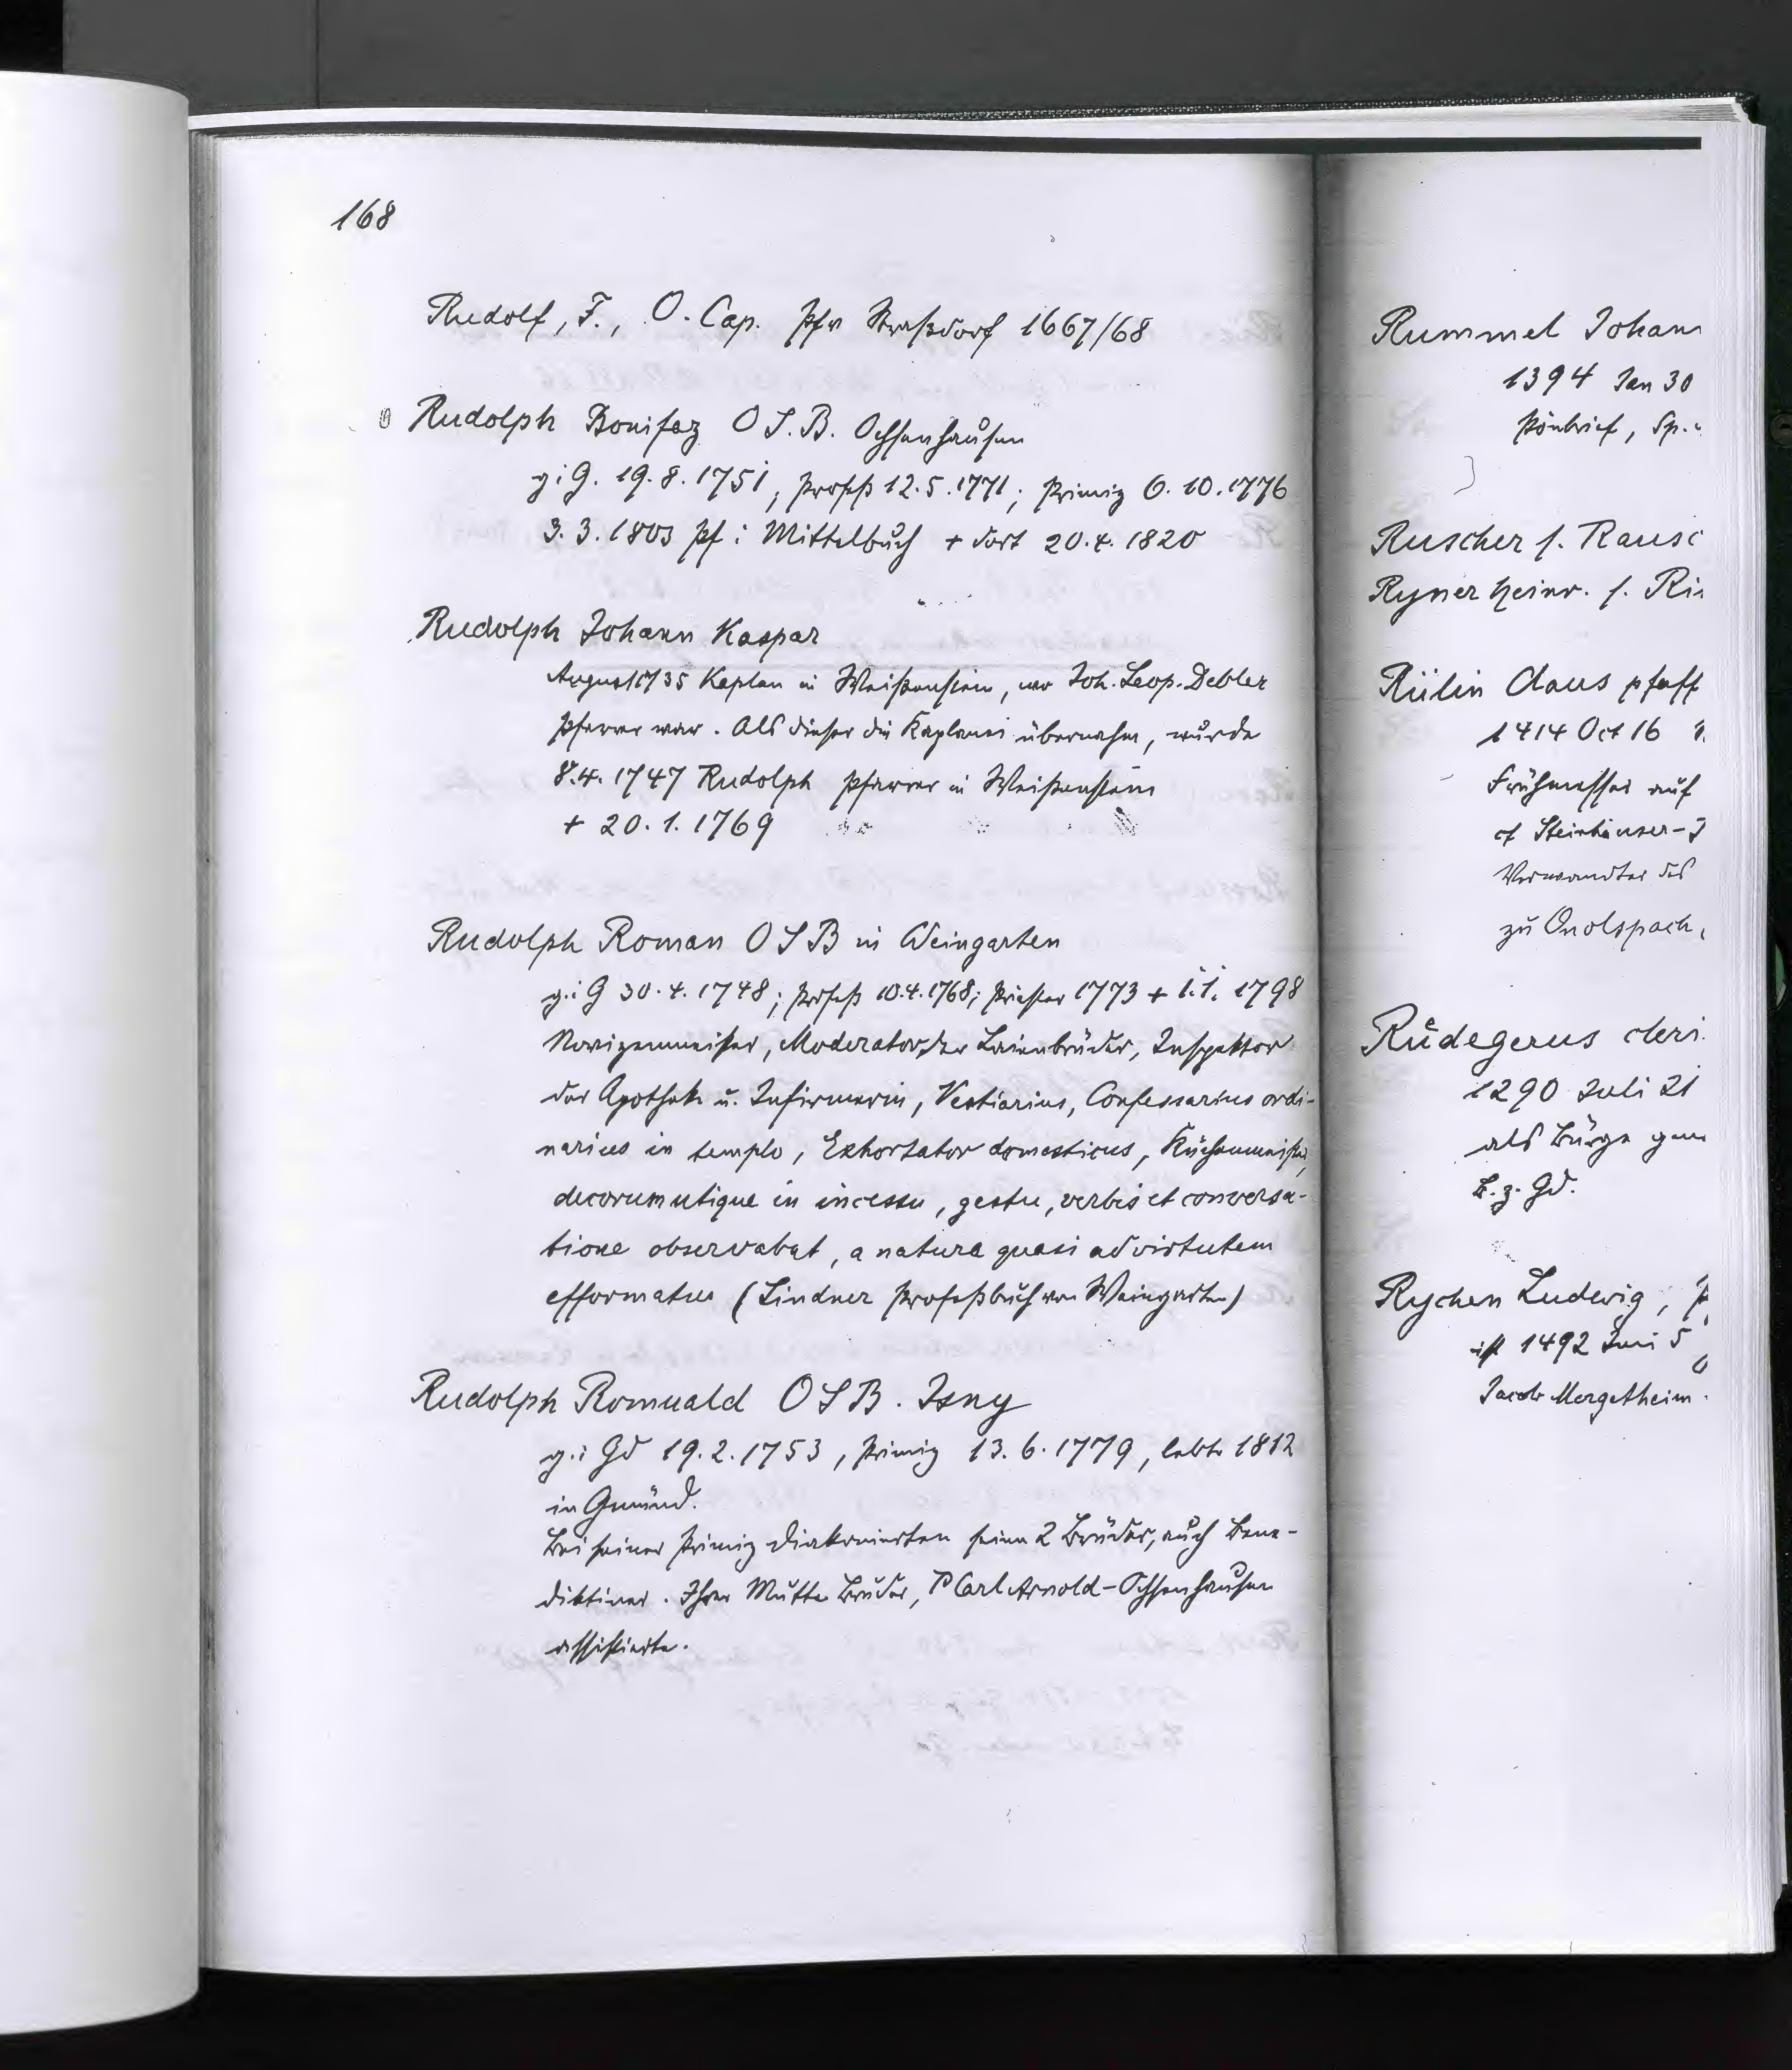 168
Rudolf, F., O. Cap. Pfv Straßdorf 1667/68
Rudolph Bonifaz O S. B. Ochsenhausen
g i G. 19. 8. 1751, Profeß 12. 5. 1771; Primiz 6. 10. 1776
3. 3. 1803 Pf i Mittelbuch + dort 20. 4. 1820
Rudolph Johann Kaspar
August 1735 Kaplan in Weißenstein, wo Joh. Leop. Debler
Pfarrer war. Als dieser die Kaplanei übernahm, wurde
8. 4. 1747 Rudolph Pfarrer in Weißenstein
+ 20. 1. 1769
Rudolph Roman O S B in Weingarten
g. i G 30. 4. 1748; Profeß 10. 4. 1768; Priester 1773 + 1. 1. 1798
Novizenmeister, Moderator der Laienbrüder, Inspektor
der Apothek u. Infirmerie, Vestiarius, Confessarius ordi-
narius in templo, Exhortator domesticus, Küchenmeister,
decorum utique in incessu, gestu, verbis et conversa-
tione observabat, a natura quasi ad virtutem
efformatus (Lindner Profeßbuch von Weingarten)
Rudolph Romuald O S B. Isny
g. i Gd 19. 2. 1753, Primiz 13. 6. 1779, lebte 1812
in Gmünd.
Bei seiner Primiz diakonierten seine 2 Brüder, auch Bene-
diktiner. Ihrer Mutter Bruder, P Carl Arnold-Ochsenhausen
assistierte.
Rummel Johann
1394 Jan 30
Pönbrief, Sp.
Ruscher s. Rausc
Ryner Heinr. s. Ri
Rülin Claus pfaff
1414 Oct 16
Frühmesser auf
cf Steinhäuser-
Verwandter des
zu Onolspach,
Růdegerus cleri
1290 Juli 21
als Bürge gen
B. z. Gd.
Rychen Ludwig, P
ist 1492 Juni 5
Jacob Mergetheim